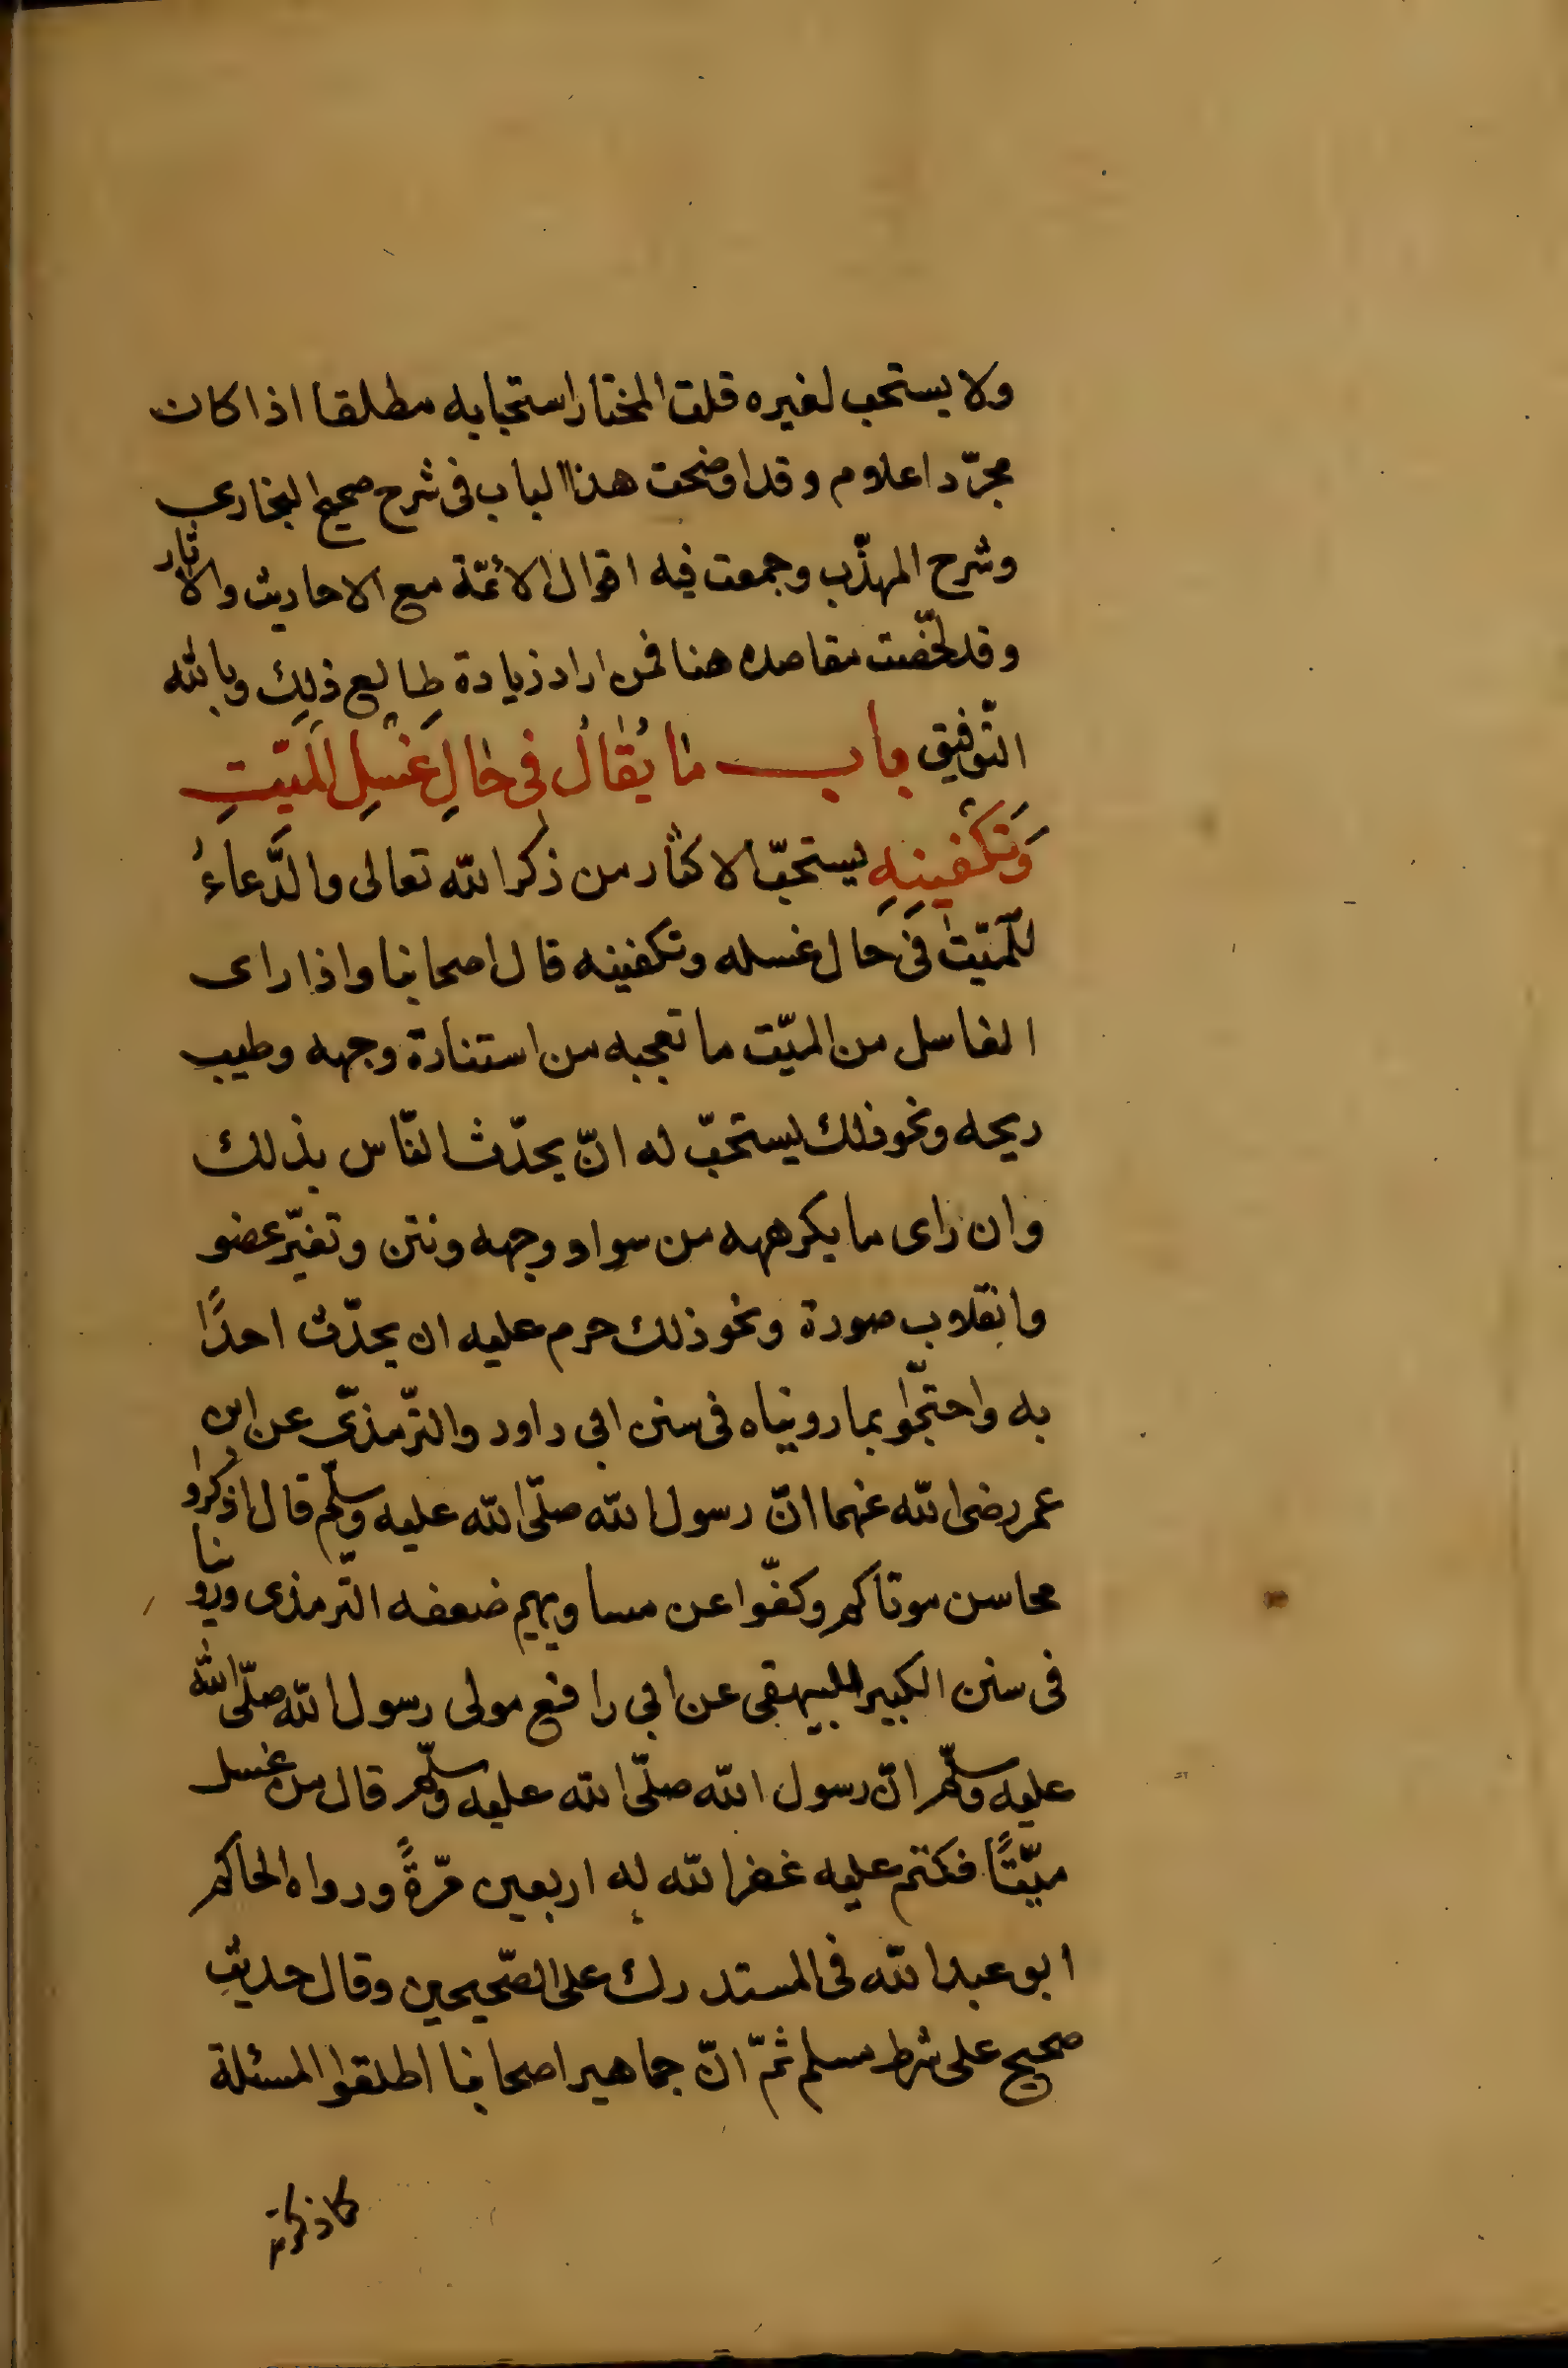 ولا يستحب لغيره قلت المختار استحبابه مطلقا اذا كان
مجرّد اعلام وقد اوضحت هذا الباب فى شرح صحيح البخارى
وشرح المهذّب وجمعت فيه اقوال الأئمّة مع الاحاديث والاثار
وقد لخّصت مقاصده هنا فمن اراد زيادة طالع ذلك وبالله
التّوفيق باب ما يُقالُ فى حالِ غَسلِ المَيّتِ
وَتَكفينِهِ يستحبّ الاكثار من ذكر الله تعالى والدّعاءُ
للميّت فى حال غسله وتكفينه قال اصحابنا واذا راى
الغاسل من الميّت ما تعجبه من استنارة وجهه وطيب
ريحه ونحو ذلك يستحبّ له انّ يحدّث النّاس بذلك
وان راى ما يكرهه من سواد وجهه ونتن وتغيّر عضو
وانقلاب صورة ونحو ذلك حرم عليه ان يحدّث احدًا
به واحتجّوا بما رويناه فى سنن ابى داود والتّرمذىّ عن ابن
عمر رضى الله عنهما انّ رسول الله صلّى الله عليه وسلّم قال اذكروا
محاسن موتاكم وكفّوا عن مساويهم ضعفه التّرمذى وروينا
فى سنن الكبير للبيهقى عن ابى رافع مولى رسول الله صلّى الله
عليه وسلّم انّ رسول الله صلّى الله عليه وسلّم قال من غسل
ميّتًا فكتم عليه غفر الله له اربعين مّرةً ورواه الحاكم
ابو عبد الله فى المستدرك على الصّحيحين وقال حديث
صحيح على شرط مسلم ثمّ انّ جماهير اصحابنا اطلقوا المسئلة
كما ذكرته